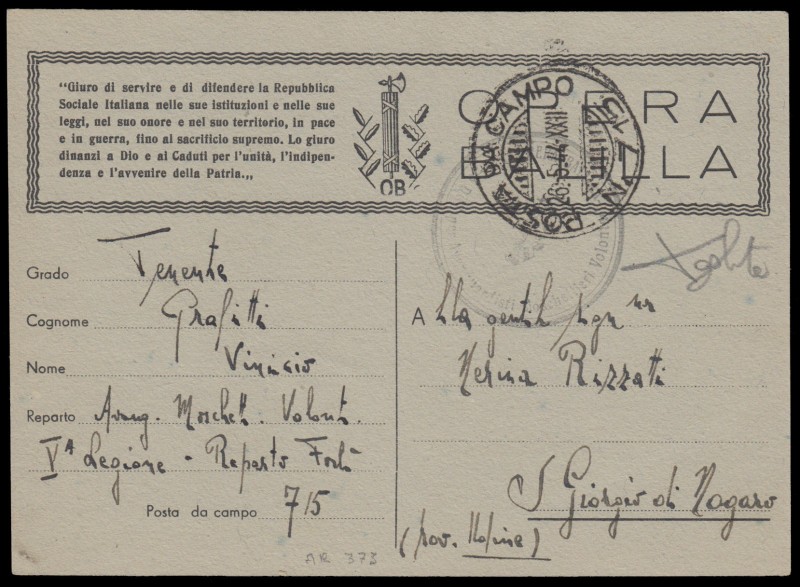 "Giuro di servire e di difendere la Repubblica
Sociale Italiana nelle sue istituzioni e nelle sue
leggi, nel suo onore e nel suo territorio, in pace
e in guerra, fino al sacrificio supremo. Lo giuro
dinanzi a Dio e ai Caduti per l'unità, l'indipen-
denza e l'avvenire della Patria.,,
OB
OPERA
BALILLA
POSTA DA CAMPO N. 715
26.5.44.XXII
Volont
Grado Tenente
Cognome Grafitti
Nome Vinicio
Reparto Avang. Moschett. Volont.
Vª Legione - Reparto
Posta da campo 715
A lla gentil sign
Nerina Rizzatti
S Giorgio di Nogaro
(prov. Udine)
AR 373